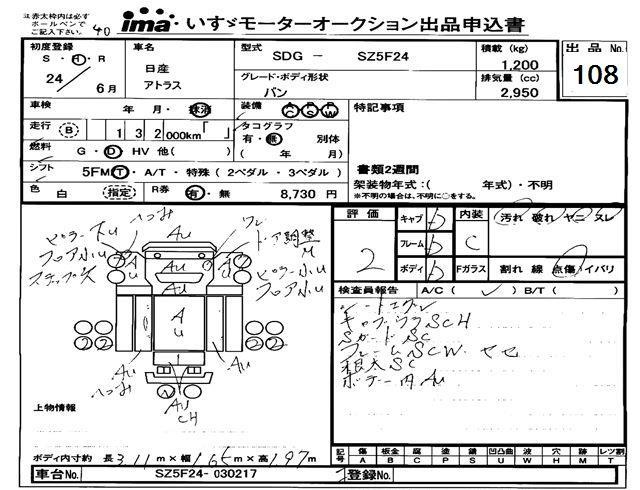 注 赤太枠内は必ず
ボールペンで
ご記入下さい。
40
ima いすゞモーターオークション出品申込書
初度登録
S・H・R
24
6月
車名
日産
アトラス
型式
SDG - SZ5F24
グレード・ボディ形状
バン
積載 (kg)
1,200
排気量 (cc)
2,950
出品 No.
108
車検 年 月・抹消
装備 AC PS PW
特記事項
走行 B 1 3 2 000km
タコグラフ
有・無 別体
( 年 月)
燃料 G・D HV 他( )
シフト 5FMT・A/T・特殊 (2ペダル・3ペダル)
書類2週間
架装物年式:( 年式)・不明
※不明の場合は、不明に○をする。
色 白 (指定)
R券 有・無 8,730 円
評価
2
キャブ b
フレーム b
ボディ b
内装
C
Fガラス
汚れ 破れ ヤニ スレ
割れ 線 点傷 イバリ
検査員報告 A/C ( ✓ ) B/T ( )
キャブウラSCH
SガードSC
フレームSCW
根太SC
ボデー内AU
ピラー大U
フロア小U
ステップ欠
へこみ
AU
ワレ
ドア調整
M
ピラー小U
フロア小U
AU
AU
2 2
2 2
AU
へこみ
AU
AU
CH
上物情報
ボディ内寸約 長 3.11 m×幅 1.65 m×高 1.97 m
記号
傷 板金 腐 塗 錆 凹凸凸凹 波 穴 跡 レツ割
A B C P S U W H M T
車台No. SZ5F24-030217
登録No.